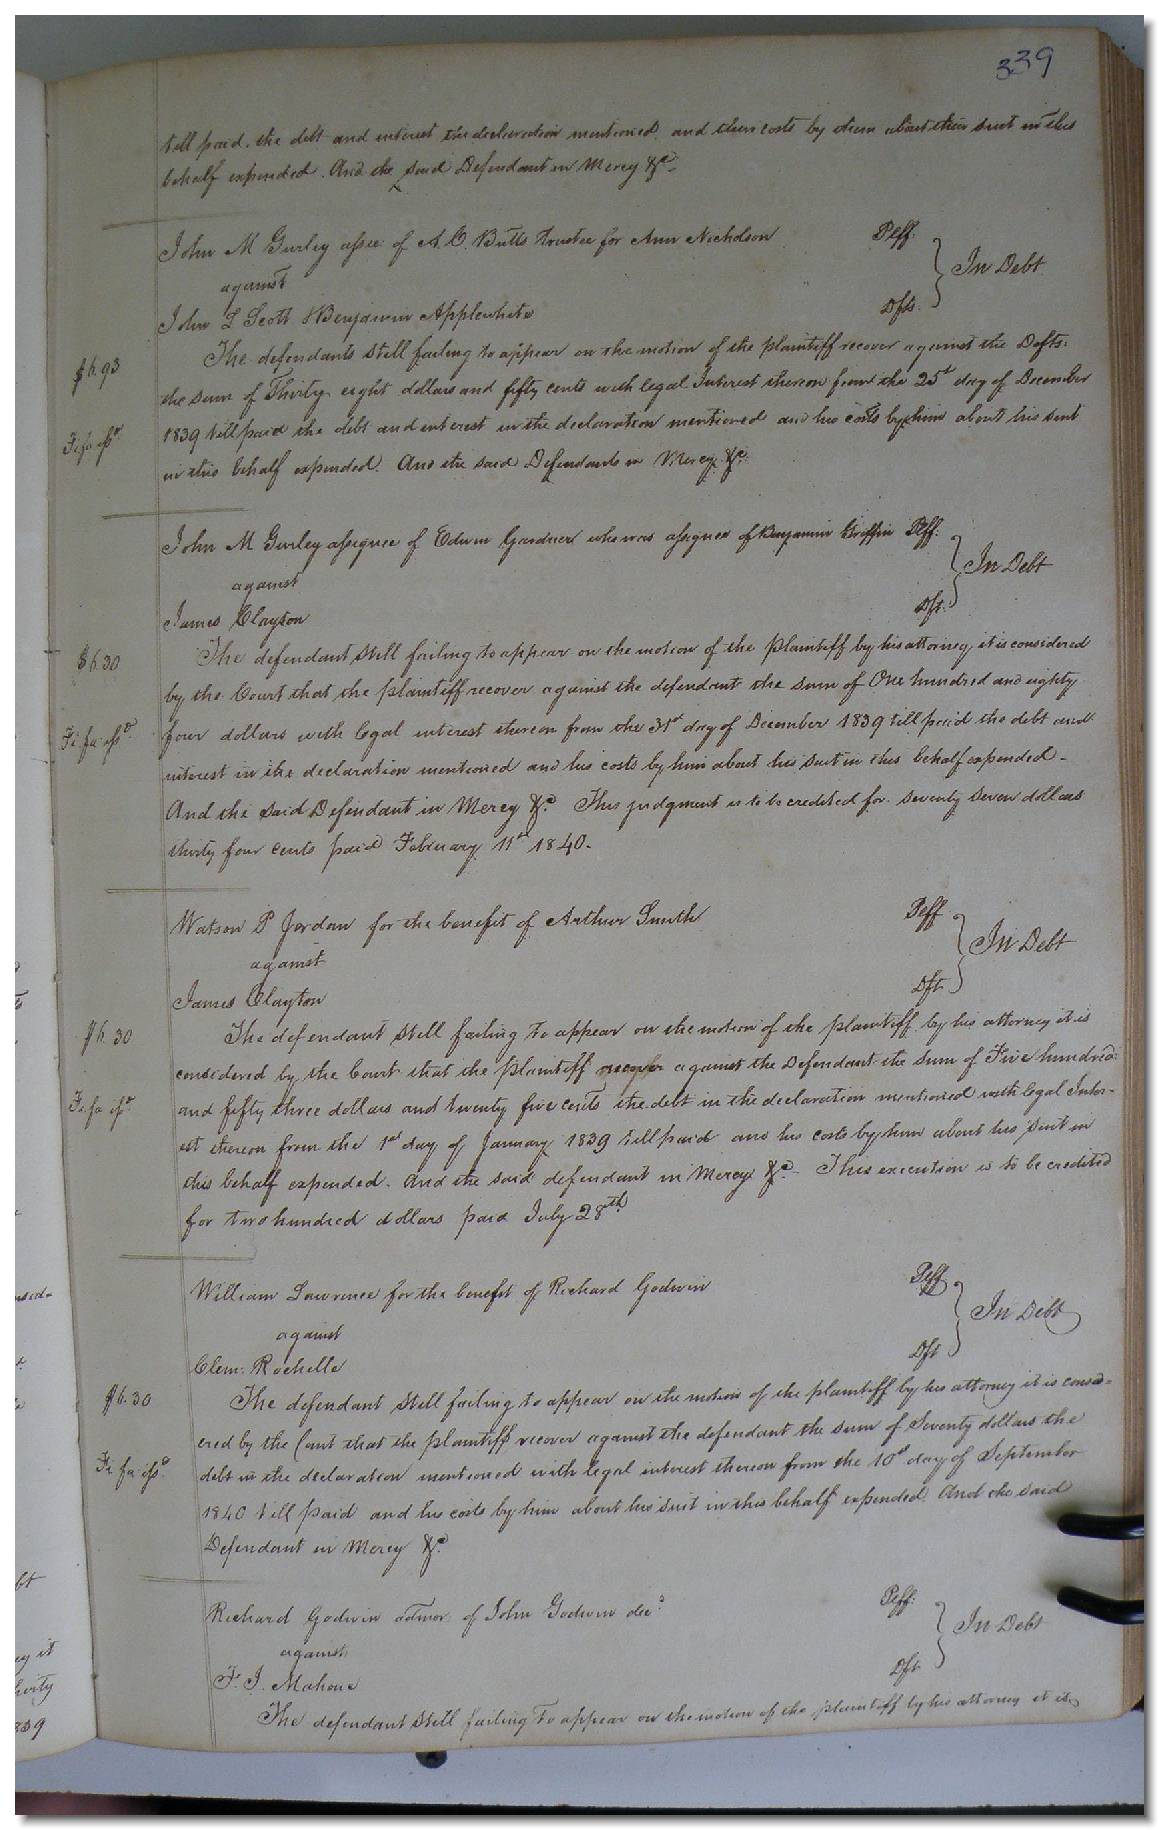 339
till paid. the debt and interest the declaration mentioned and their costs by them about their suit in this
behalf expended. And the said Defendant in Mercy &c.
John M Gurley assee: of A. O. Butts trustee for Ann Nicholson Plff.
against In Debt
John L Scott & Benjamin Applewhite Dfts.
The defendants still failing to appear on the motion of the plaintiff recover against the Defts.
$6.93
the sum of Thirty eight dollars and fifty cents with legal Interest thereon from the 25th day of December
1839 till paid the debt and interest in the declaration mentioned and his costs by him about his suit
Fi fa issd
in this behalf expended. And the said Defendants in Mercy &c.
John M Gurley assignee of Edwin Gardner who was assignee of Benjamin Griffin Plff.
against In Debt
James Clayton Dft.
The defendant still failing to appear on the motion of the plaintiff by his attorney it is considered
$6.30
by the Court that the plaintiff recover against the defendant the sum of One hundred and eighty
four dollars with legal interest thereon from the 31st day of December 1839 till paid the debt and
Fi fa issd
interest in the declaration mentioned and his costs by him about his suit in this behalf expended -
And the said Defendant in Mercy &c. This judgment is to be credited for seventy seven dollars
thirty four cents paid February 11th 1840.
Watson P Jordan for the benefit of Arthur Smith Plff
against In Debt
James Clayton Dft
The defendant still failing to appear on the motion of the plaintiff by his attorney it is
$6.30
considered by the Court that the plaintiff recover against the Defendant the sum of Five hundred
and fifty three dollars and twenty five cents the debt in the declaration mentioned with legal Inter-
Fi fa issd
est thereon from the 1st day of January 1839 till paid and his costs by him about his suit in
this behalf expended. And the said defendant in Mercy &c - This execution is to be credited
for two hundred dollars paid July 28th
William Lawrence for the benefit of Richard Godwin Plff
against In Debt
Clem: Rochelle Dft
The defendant still failing to appear on the motion of the plaintiff by his attorney it is consid=
$6.30
ered by the Court that the plaintiff recover against the defendant the sum of Seventy dollars the
debt in the declaration mentioned with legal interest thereon from the 10th day of September
Fi fa issd
1840 till paid and his costs by him about his suit in this behalf expended. And the said
Defendant in Mercy &c
Richard Godwin admor. of John Godwin decd Plff.
against In Debt
F. J. Mahone Dft
The defendant still failing to appear on the motion of the plaintiff by his attorney it is